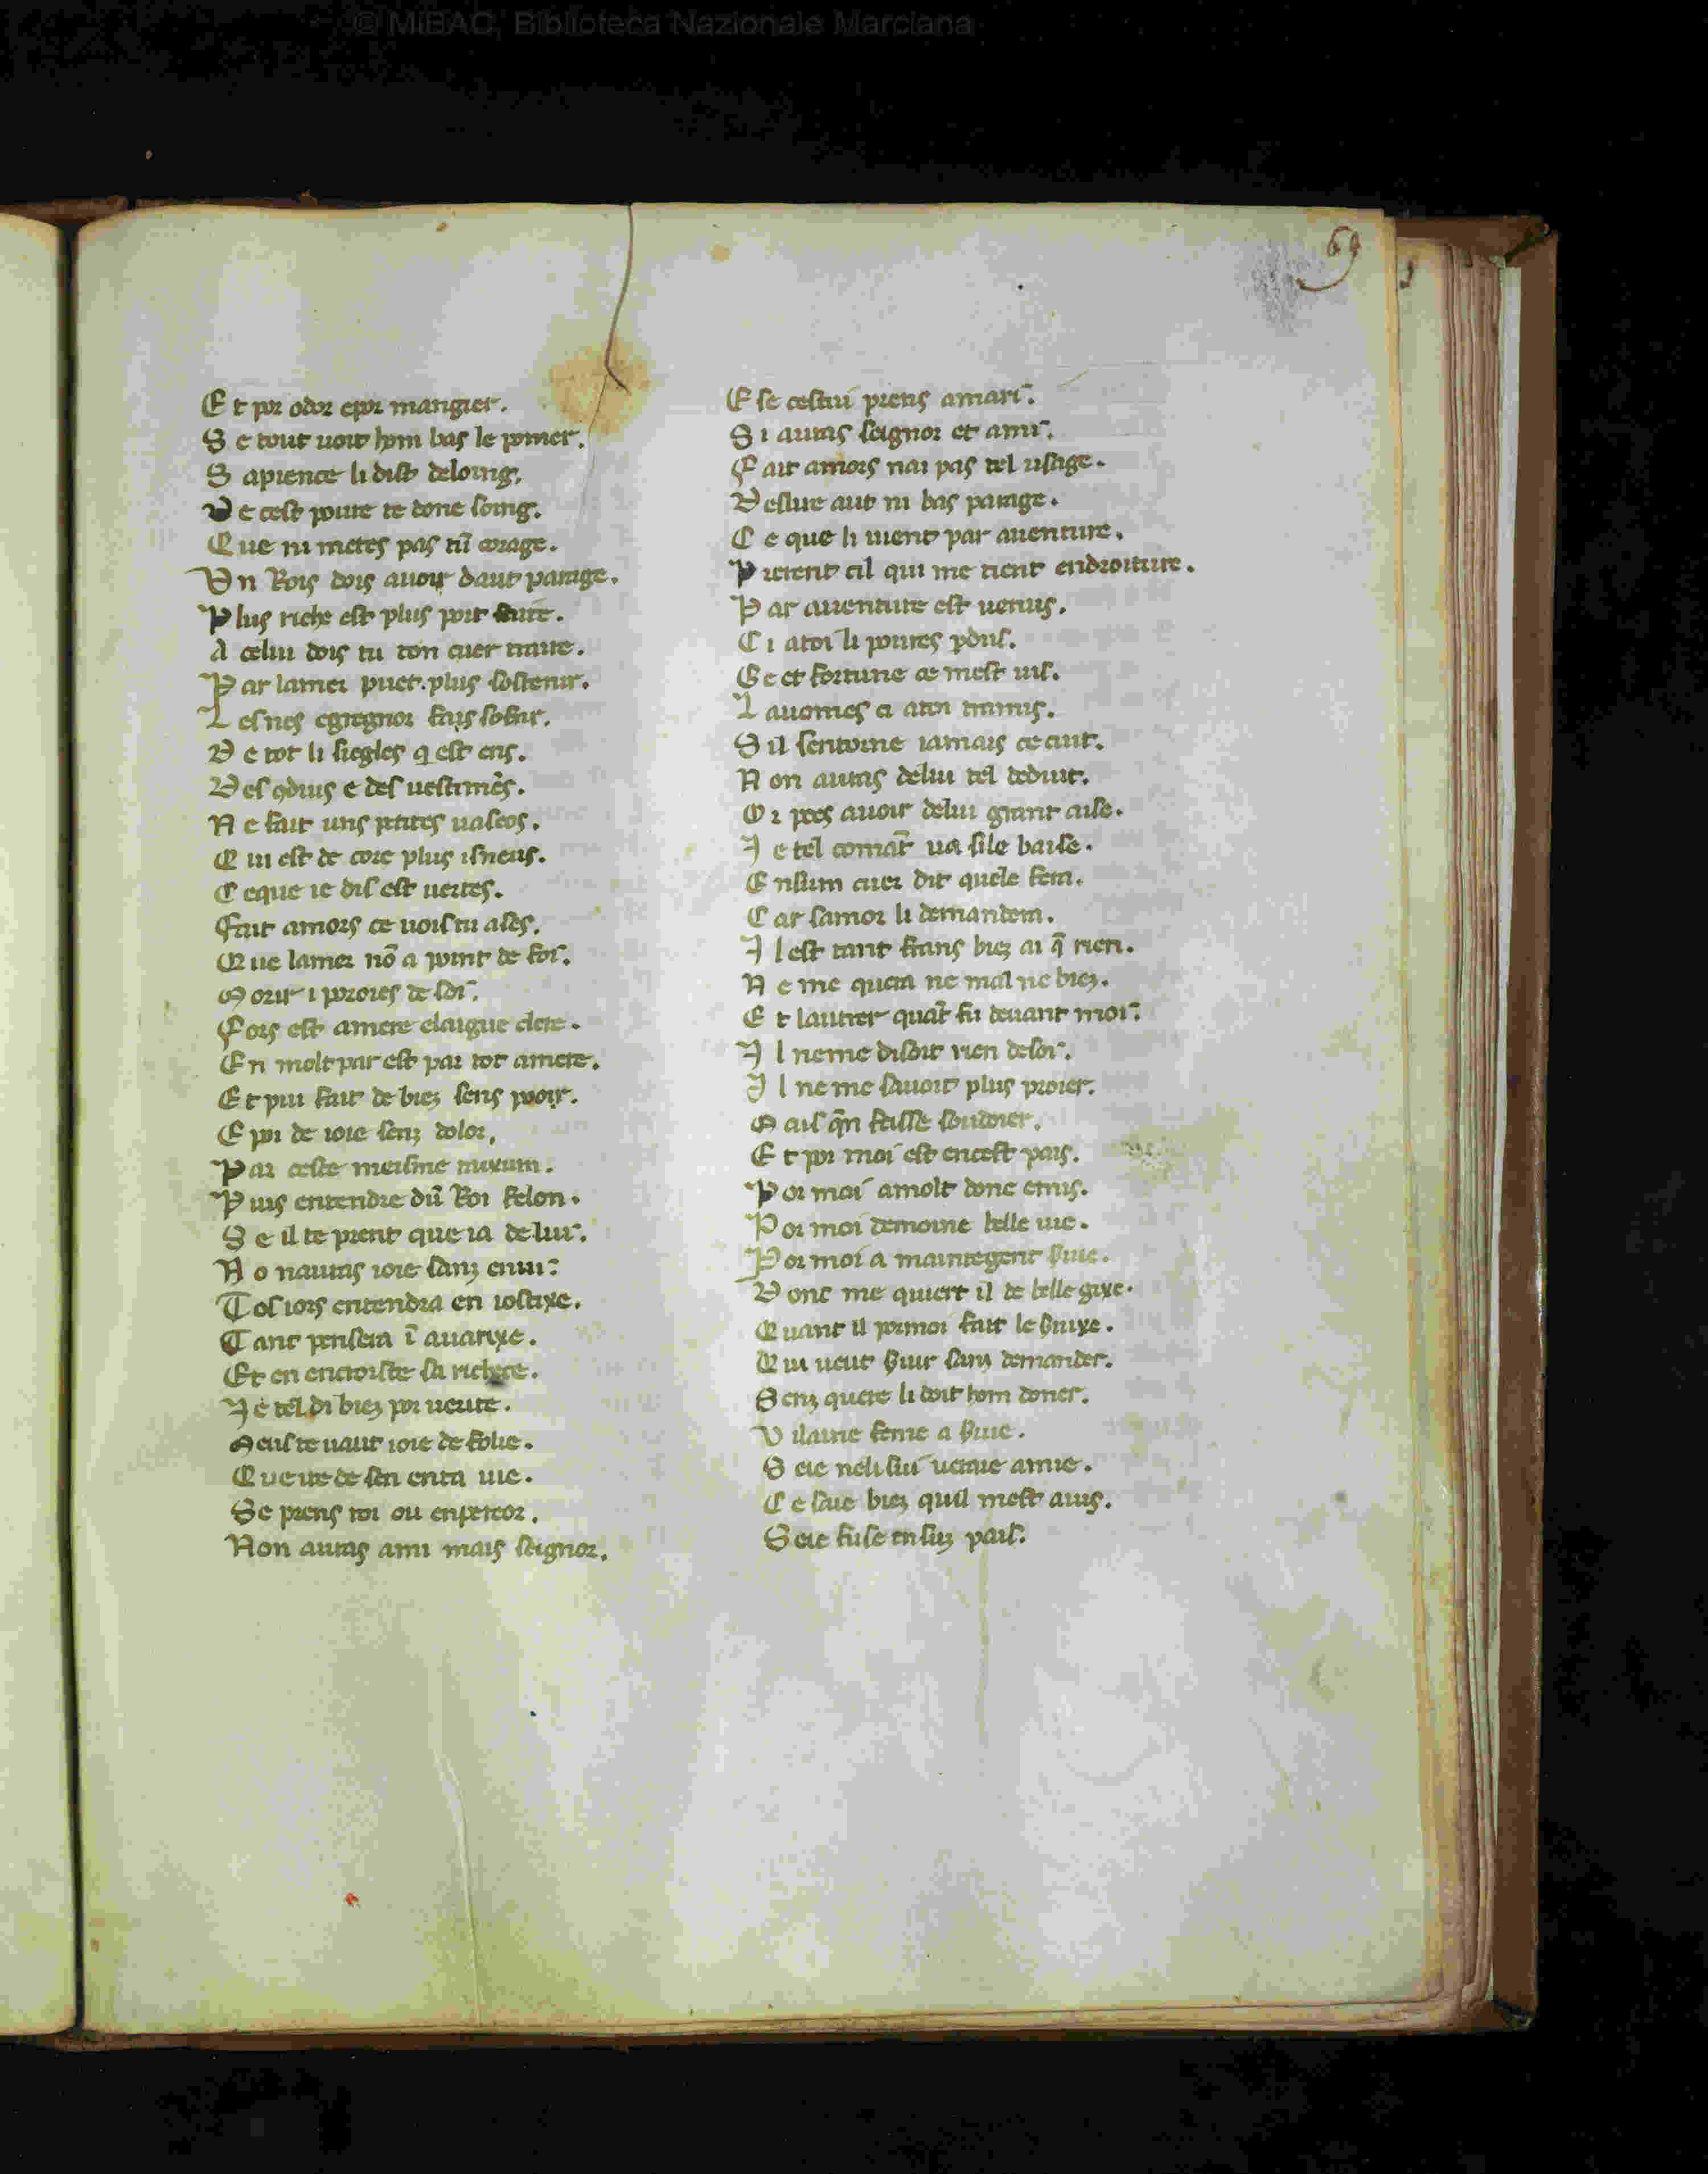 © MiBAC, Biblioteca Nazionale Marciana
69
E t por odor epor mangier.
S e tout uoit hom bas le pomer.
S apience li dist deloing.
D e cest poure te done soing.
Que ni metes pas tū corage.
Vn Rois dois auoir daut parage.
Plus riche est plus poit faire.
A celui dois tu ton cuer traire.
P ar lamer puet plus sostenir.
L es nes egregnor fais sofrir.
D e tot li siegles q est ens.
D es ꝯduis e des uestimēs.
N e fait uns petites uaseos.
Q ui est de core plus isneus.
C eque ie dis est uertes.
Fait amors ce uois tu ases.
Q ue lamer nō a point de foi.
M orir i poroies de soi.
F ors est amere elaigue clere.
E n molt par est par tot amere.
E t piu fait de biez sens pooir.
E poi de ioie senz dolor.
P ar ceste meisme
P uis entendre dū Roi felon.
S e il te prent que ia de lui.
N o nauras ioie sanz enui.
T os iors entendra en iostixe.
T ant pensera ī auarixe.
Et en encroistre sa richece.
J e tel di biez por uerite.
Meus te uaut ioie de folie.
Q ue de sen enta uie.
Se prens roi ou enpereor.
Non auras ami mais seignor.
E se cestui prens amari.
S i auras seignor et ami.
F ait amors nai pas tel usage.
D esliue aut ni bas parage.
C e que li uient par auenture.
P rerent cil qui me tient endroiture.
P ar auenture est uenus.
C i atoi li poures ꝑdus.
G e et fortune ce mest uis.
L auomes ci atoi tramis.
S il sentorne iamais ce cuit.
N on auras delui tel deduit.
O r poes auoir delui grant aise.
J e tel comāt ua sile baise.
E nsum cuer dit quele fera.
C ar samor li demandera.
J l est tant frans biez ai q̄ rien.
N e me quera ne mal ne biez.
E t lautrer quāt fu deuant moi.
J l neme disoit rien desoi.
J l ne me sauoit plus proier.
M ais q̄n feisse soudoier.
E t por moi est encest pais.
P or moi amolt donc emis.
P or moi demoine belle uie.
P or moi a maintegent
D onc me quiert il de belle gixe.
Q uant il pormoi fait le
Q ui ueut sanz demander.
S enz quere li doit hom doner.
V ilaine feme a
S eie neli sui ueraie amie.
C e saie biez quil mest auis.
S eie fuse en suz pais.